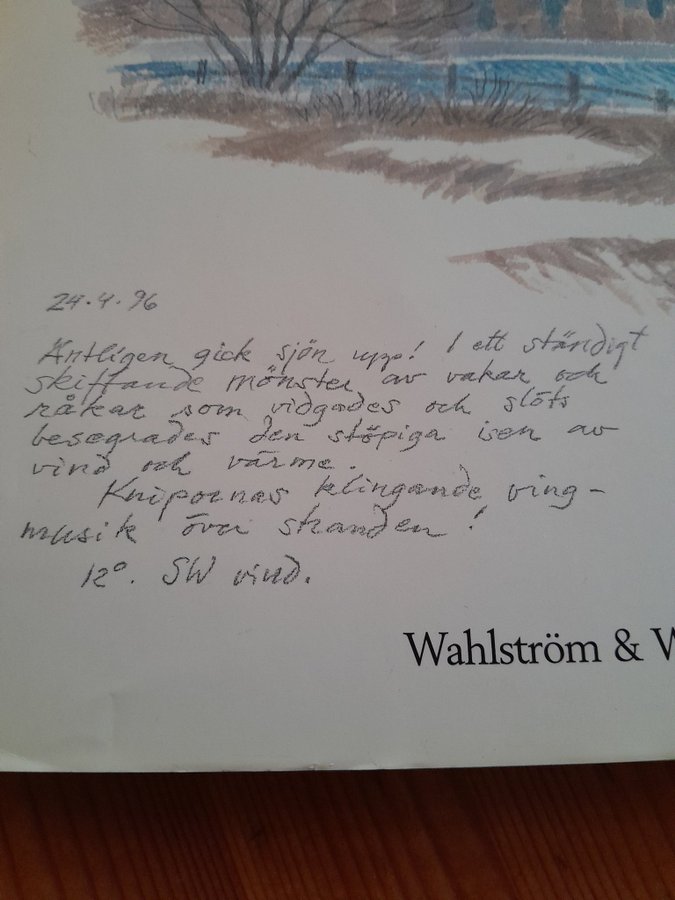 24.4.96
Äntligen gick sjön upp! I ett ständigt
skiftande mönster av vakar och
råkar som vidgades och slöts
besegrades den stöpiga isen av
vind och värme.
Knipornas klingande ving-
musik över stranden!
12°. SW vind.
Wahlström & W